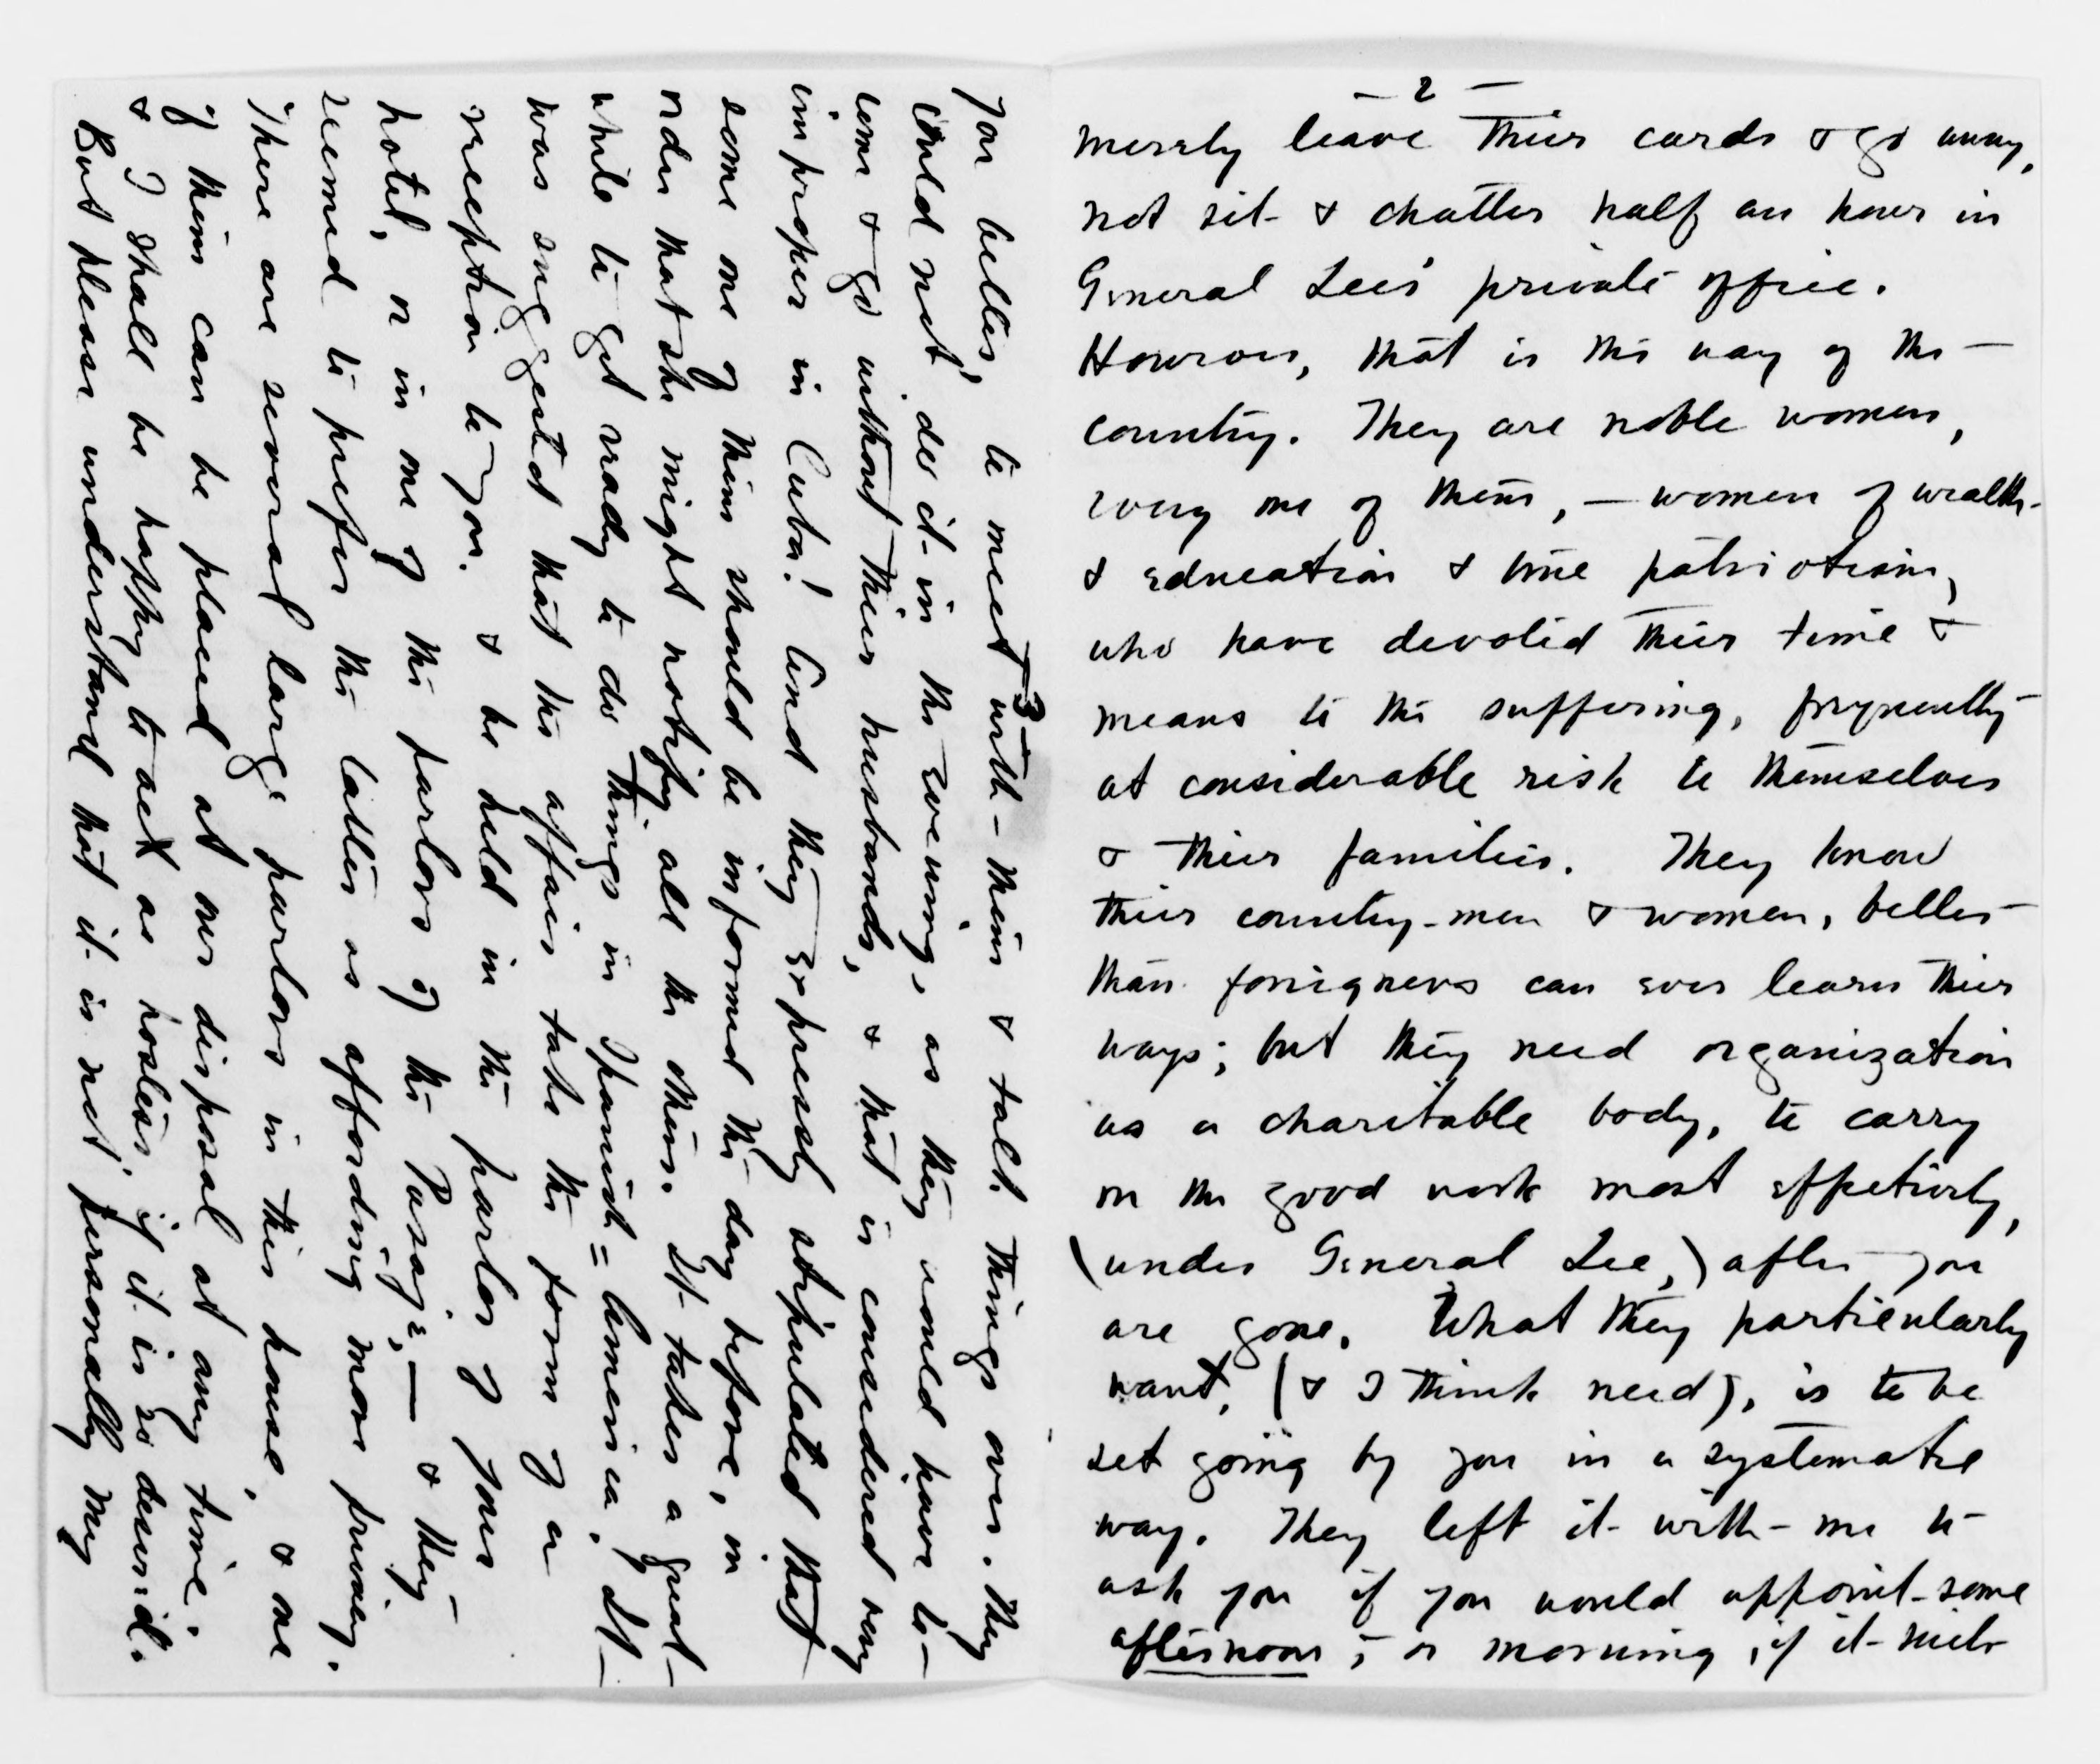 - 2 -
merely leave their cards & go away,
not sit & chatter half an hour in
General Lee's private office.
However, that is the way of the
country. They are noble women,
every one of them, — women of wealth
& education & true patriotism,
who have devoted their time &
means to the suffering, frequently
at considerable risk to themselves
& their families. They know
their country-men & women, better
than foreigners can ever learn their
ways; but they need organization
as a charitable body, to carry
on the good work most effectively,
(under General Lee,) after you
are gone. What they particularly
want, (& I think need), is to be
set going by you in a systematic
way. They left it with me to
ask you if you would appoint some
afternoon, or morning, if it suits
- 3 -
you better, to meet with them & talk things over. They
could not do it in the evening, as they would have to
come & go without their husbands, & that is considered very
improper in Cuba! And they expressly stipulated that
some one of them should be informed the day before, in
order that she might notify all the others. It takes a great
while to get ready to do things in Spanish = America. It
was suggested that the affair take the form of a
reception to you, & be held in the parlor of your
hotel, or in one of the parlors of the Pasaje, — & they
seemed to prefer the latter as affording more privacy.
There are several large parlors in this house, & one
of them can be placed at our disposal at any time.
& I shall be happy to act as hostess if it is so desired.
But please understand that it is not personally my